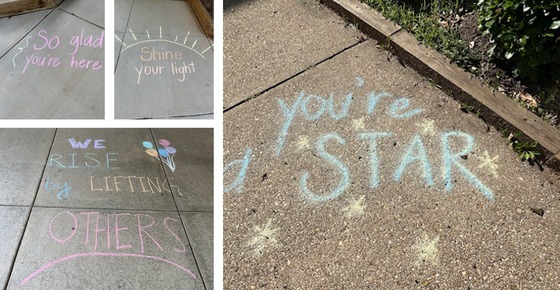 So glad
you're here
Shine
your light
WE
RISE
by LIFTING
OTHERS
you're
STAR